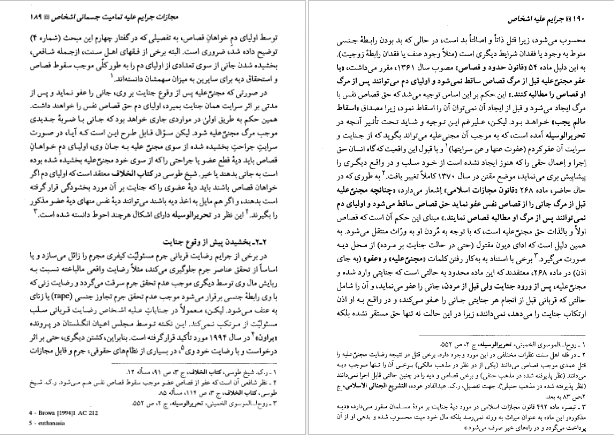 ۱۹۰ جرایم علیه اشخاص
محسوب می‌شود، زیرا قتل ذاتاً و اصالتاً بد است، در حالی که بد بودن رابطهٔ جنسی
منوط به وجود یا فقدان شرایط دیگری است (مثلاً وجود عنف یا فقدان رابطهٔ زوجیت).
به این دلیل ماده ۵۴ «قانون حدود و قصاص»، مصوب سال ۱۳۶۱، مقرر می‌داشت، «با
عفو مجنیٌ‌علیه قبل از مرگ قصاص ساقط نمی‌شود و اولیای دم می‌توانند پس از مرگ
او قصاص را مطالبه کنند.» این حکم بر این اساس توجیه می‌شد که حق قصاص نفس با
مرگ ایجاد می‌شود و قبل از ایجاد آن نمی‌توان آن را اسقاط نمود، زیرا مصداق «اسقاط
مالم یجب» خواهد بود. لیکن، علیرغم این توجیه و شاید تحت تأثیر آنچه در
تحریرالوسیله آمده است، که به موجب آن مجنیٌ‌علیه می‌تواند بگوید که از جنایت و
سرایت آن عفو کردم (عفوت عنها و عن سرایتها)۱ و با قبول این واقعیت که گاه انسان حق
اجرا و اعمال حقی را که هنوز ایجاد نشده است از خود سلب و در واقع دیگری را
پیشاپیش بری می‌نماید، موضع مقنن در سال ۱۳۷۰ کاملاً تغییر یافت.۲ به طوری که در
حال حاضر، ماده ۲۶۸ «قانون مجازات اسلامی» اِشعار می‌دارد، «چنانچه مجنیٌ‌علیه
قبل از مرگ جانی را از قصاص نفس عفو نماید حق قصاص ساقط می‌شود و اولیای دم
نمی‌توانند پس از مرگ او مطالبه قصاص نمایند.» مبنای این حکم آن است که قصاص
اولاً و بالذات حق مجنیٌ‌علیه است، که با توجه به مُردن او به ورّاث منتقل می‌شود. به
همین دلیل است که ادای دیون مقتول (حتی در حالت جنایت بر مرده) از محل دیه
صورت می‌گیرد.۳ برخی با استناد به به‌کار رفتن کلمات «مجنیٌ‌علیه» و «عفو» (به جای
اذن) در ماده ۲۶۸، معتقدند که این ماده محدود به حالتی است که جنایتی وارد شده و
مجنیٌ‌علیه پس از ورود جنایت ولی قبل از مردن، جانی را عفو می‌نماید، و آن را شامل
حالتی که قربانی قبل از انجام هر جنایتی جانی را عفو می‌کند، و در واقع به او اذن
ارتکاب جنایت را می‌دهد، نمی‌دانند، زیرا در این حالت نه تنها حق مستقر نشده بلکه
۱ - روح‌ا... الموسوی الخمینی، تحریرالوسیله، ج ۲، ص ۵۵۲.
مجازات جرایم علیه تمامیت جسمانی اشخاص ۱۸۹
توسط اولیای دم خواهان قصاص، به تفصیلی که در گفتار چهارم این مبحث (شماره ۴)
توضیح داده شد، ضروری است. البته برخی از فقهای اهل سنت، ازجمله شافعی،
بخشیده شدن جانی از سوی تعدادی از اولیای دم را به طور کلّی موجب سقوط قصاص
و استحقاق دیه برای سایرین به میزان سهمشان دانسته‌اند.۱
در صورتی که مجنیٌ‌علیه پس از وقوع جنایت بر وی، جانی را عفو نماید و پس از
مدتی بر اثر سرایت همان جنایت بمیرد، اولیای دم حق قصاص نفس را خواهند داشت.
همین حکم به طریق اولیٰ در مواردی جاری خواهد بود که جانی با ضربهٔ جدیدی
موجب مرگ مجنیٌ‌علیه شود. لیکن سؤال قابل طرح این است که آیا، در صورت
سرایتِ جراحتِ بخشیده شده از سوی مجنیٌ علیه به جان وی، اولیای دم خواهان
قصاص باید دیهٔ قطع عضو یا جراحتی را که از سوی خود مجنیٌ‌علیه بخشیده شده بوده
است به جانی بدهند یا خیر. شیخ طوسی در کتاب الخلاف معتقد است که اولیای دم اگر
خواهان قصاص باشند باید دیهٔ عضوی را که جنایت بر آن مورد بخشودگی قرار گرفته
است بدهند، و اگر هم مایل به اخذ دیه باشند می‌توانند دیهٔ نفس منهای دیهٔ عضو مذکور
را بگیرند.۲ این نظر در تحریرالوسیله دارای اشکال هرچند احوط دانسته شده است.۳
۲-۲- بخشیدن پیش از وقوع جنایت
در برخی از جرایم رضایت قربانی جرم مسئولیّت کیفری مجرم را زائل می‌سازد و یا
اساساً از تحقق عناصر جرم جلوگیری می‌کند، مثلاً رضایت واقعی مالباخته نسبت به
ربایش مال وی توسط دیگری موجب عدم تحقق جرم سرقت می‌گردد و رضایت زنی که
با وی رابطهٔ جنسی برقرار می‌شود موجب عدم تحقق جرم تجاوز جنسی (rape) یا زنای
به عنف می‌شود. لیکن، معمولاً در جنایات علیه اشخاص رضایت قربانی سلب
مسئولیّت از مرتکب نمی‌کند. این نکته توسط مجلس اعیان انگلستان در پرونده
«براون»۴ در سال ۱۹۹۴ مورد تأکید قرار گرفته است. بنابراین، کشتن دیگری، حتی بر اثر
درخواست و با رضایت خود وی۵، در بسیاری از نظام‌های حقوقی، جرم و قابل مجازات
۱ - ر.ک. شیخ طوسی، کتاب الخلاف، ج ۳، ص ۹۱، مسأله ۱۲.
۳ - روح‌ا... الموسوی الخمینی، تحریرالوسیله، ج ۲، ص ۵۵۲.
4 - Brown [1994]1 AC 212
5 - euthanasia